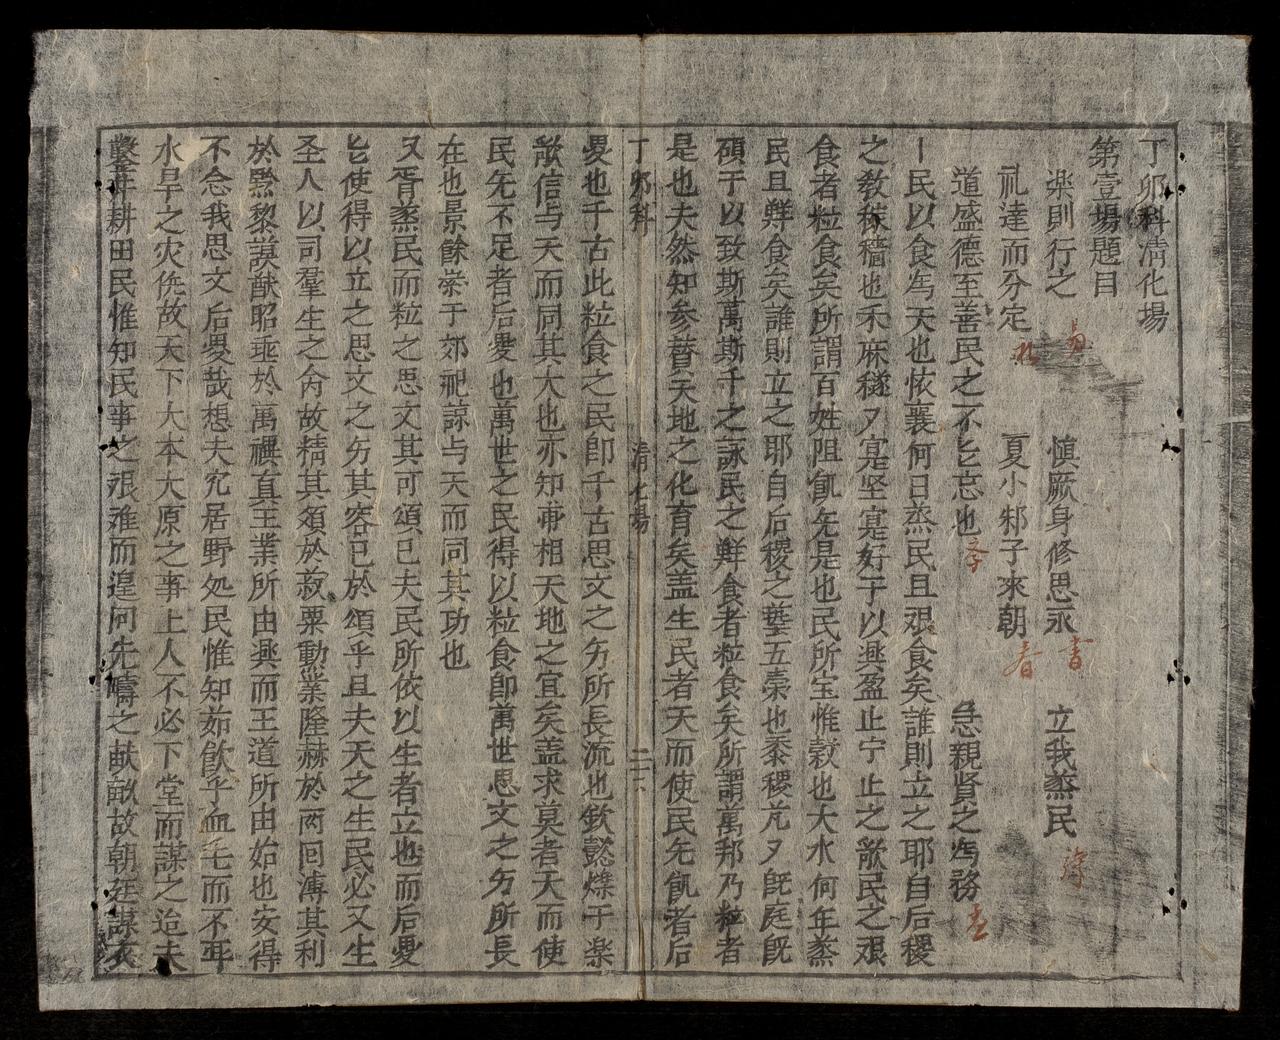 丁卯科清化場
第壹場題目
楽則行之 易 慎厥身修思永 書 立我烝民 詩
礼達而分定 礼 夏小邾子來朝 春
道盛德至善民之不能忘也 斈 急親賢之為務 孟
民以食為天也懐襄何日烝民且艰食矣誰則立之耶自后稷
之教稼穡也禾麻穟又寔坚寔好于以興盈止宁止之歌民之艰
食者粒食矣所謂百姓阻飢先是也民所宝惟穀也大水何年烝
民且鮮食矣誰則立之耶自后稷之蓺五秦也黍稷芃又既庭既
碩于以致斯萬斯千之詠民之鮮食者粒食矣所謂萬邦乃粒者
是也夫然知参替天地之化育矣盖生民者天而使民先飢者后
丁卯科 清化場 二
憂也千古此粒食之民即千古思文之功所長流也欽懿爍于楽
歌信与天而同其大也亦知甫相天地之宜矣盖求莫者天而使
民先不足者后憂也萬世之民得以粒食即萬世思文之功所長
在也景餘崇于郊祀諒与天而同其功也
又胥烝民而粒之思文其可頌已夫民所依以生者立也而后憂
能使得以立之思文之功其容已於頌乎且夫天之生民必又生
圣人以司羣生之命故精其頌於菽粟動業隆赫於两囘溥其利
於黔黎謨猷昭垂於萬禩直王業所由興而王道所由始也安得
不念我思文后憂哉想夫穴居野处民惟知茹飲乎血毛而不耳
水旱之灾侁故天下大本大原之事上人不必下堂而謀之迨夫
鑿井耕田民惟知民事之艰难而遑问先疇之畎畝故朝廷謀衣